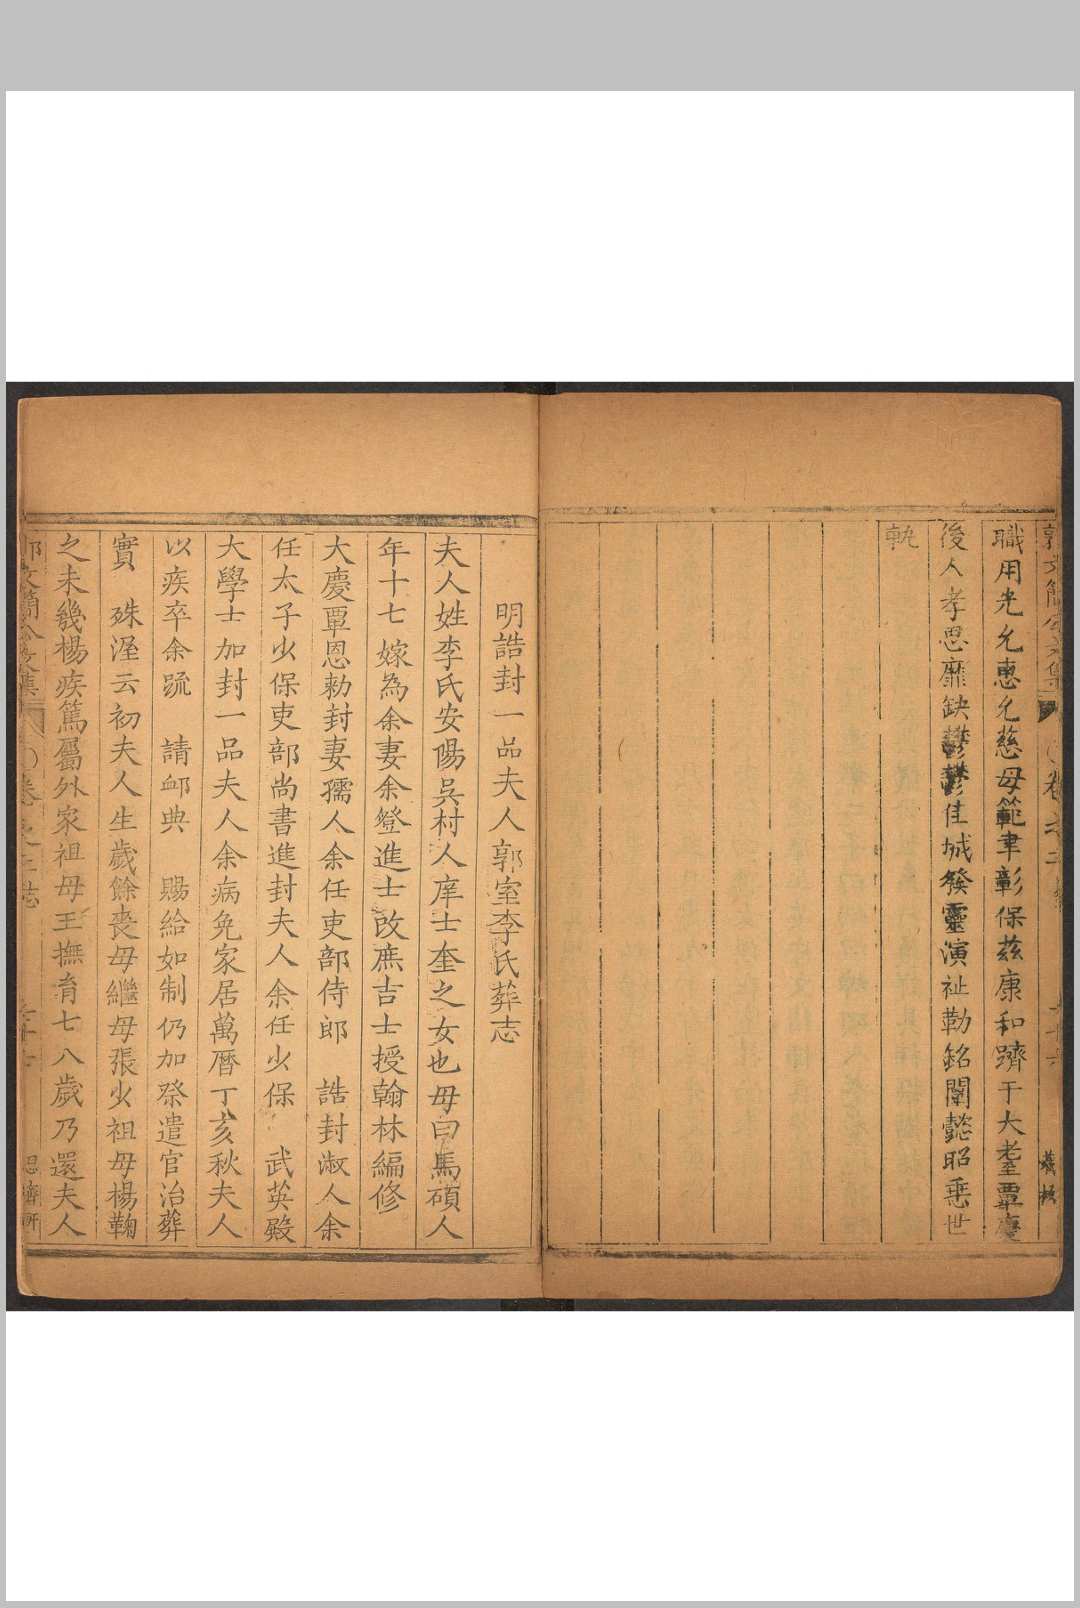 職用光允惠允慈母範聿彰保茲康和躋于大耋覃慶
後人孝思靡缺鬱鬱佳城發靈演祉勒銘闡懿昭垂世
執
明誥封一品夫人郭室李氏葬志
夫人姓李氏安陽吳村人庠士奎之女也母曰馬碩人
年十七 嫁為余妻余登進士改庶吉士授翰林編修
大慶覃恩勑封妻孺人余任吏部侍郎 誥封淑人余
任太子少保吏部尚書進封夫人余任少保 武英殿
大學士加封一品夫人余病免家居萬曆丁亥秋夫人
以疾卒余疏 請卹典 賜給如制仍加祭遣官治葬
實 殊渥云初夫人生歲餘喪母繼母張少祖母楊鞠
之未幾楊疾篤屬外家祖母王撫育七八歲乃還夫人
郭文簡公文集